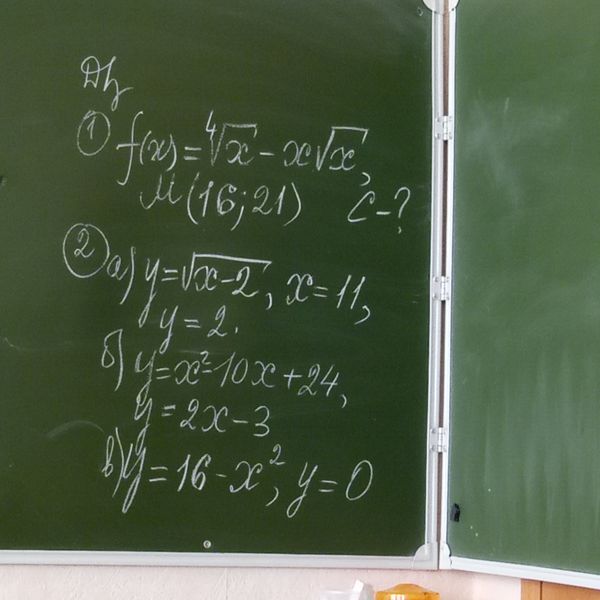 Дз
① f(x) = ⁴√x − x√x,
M(16; 21) C−?
② а) y = √x−2, x = 11,
y = 2.
б) y = x² − 10x + 24,
y = 2x − 3
в) y = 16 − x², y = 0